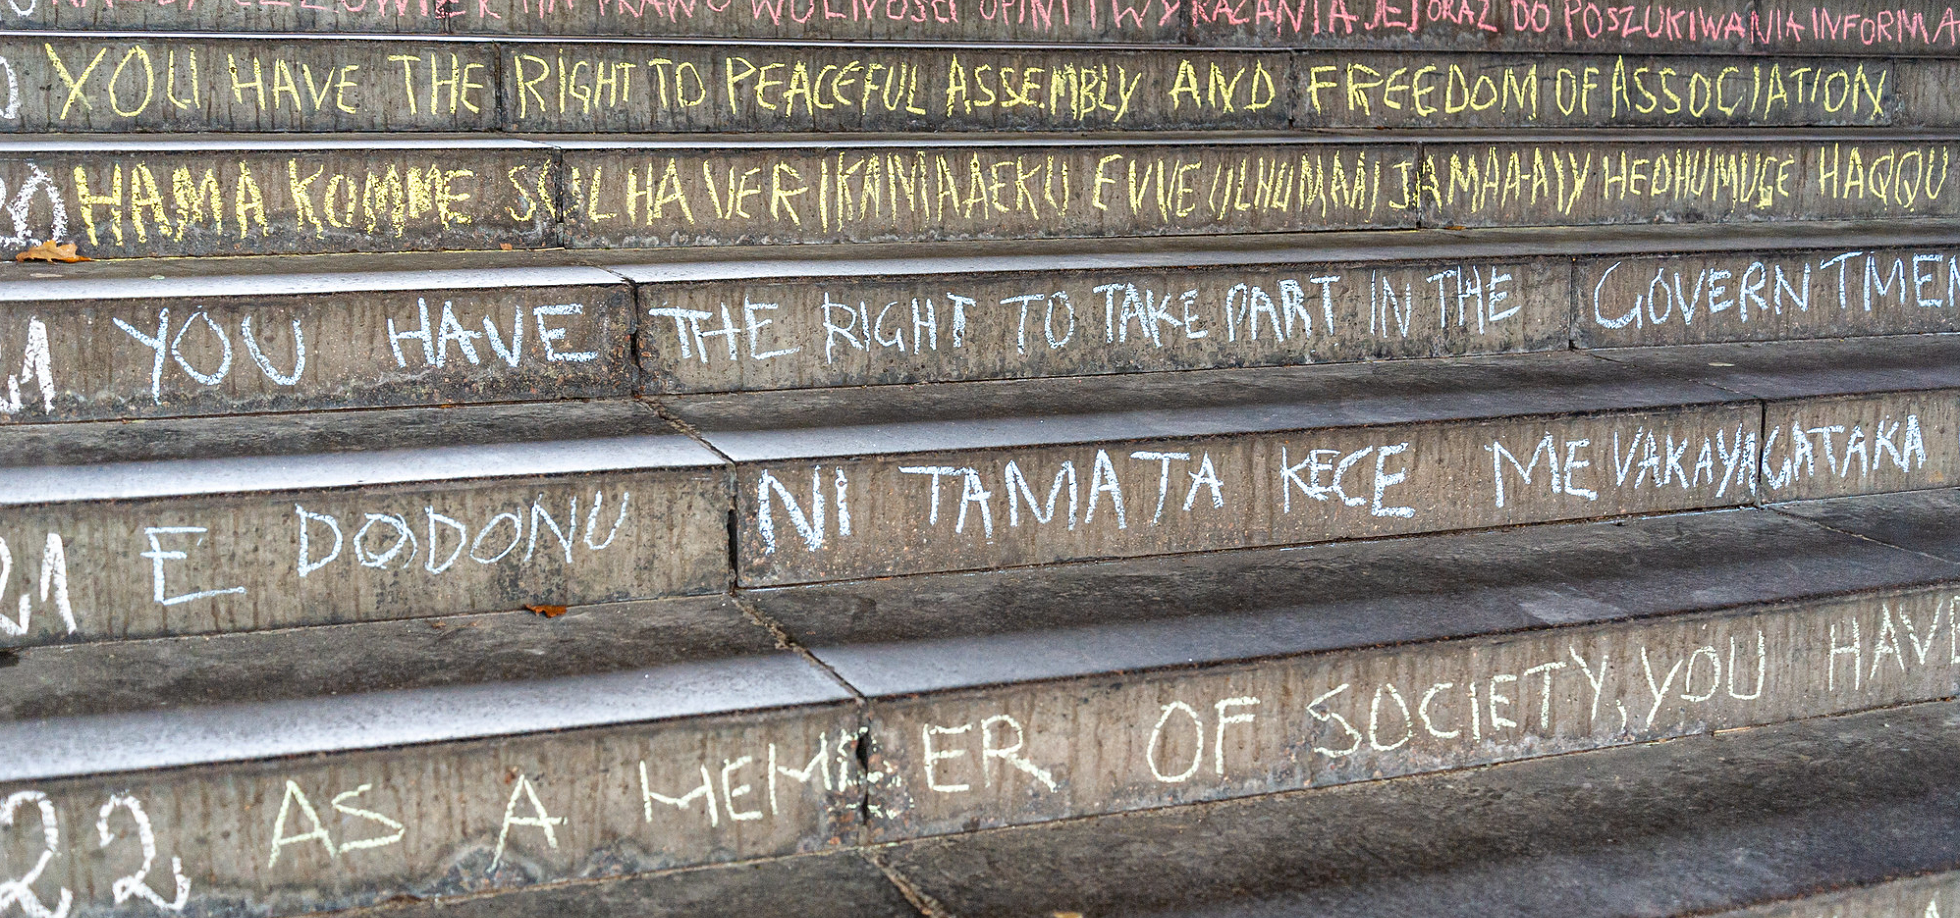 CZŁOWIEK MA PRAWO WOLNOŚCI OPINII I WYRAŻANIA JEJ ORAZ DO POSZUKIWANIA
YOU HAVE THE RIGHT TO PEACEFUL ASSEMBLY AND FREEDOM OF ASSOCIATION
20 HAMA KOMME SULHAVERIKAMAAEKU EVVE ULHUMAAI JAMAA-AIY HEDHUMUGE HAQQU
21 YOU HAVE THE RIGHT TO TAKE PART IN THE GOVERNMEN
21 E DODONU NI TAMATA KECE ME VAKAYAGATAKA
22 AS A MEMBER OF SOCIETY, YOU HAVE